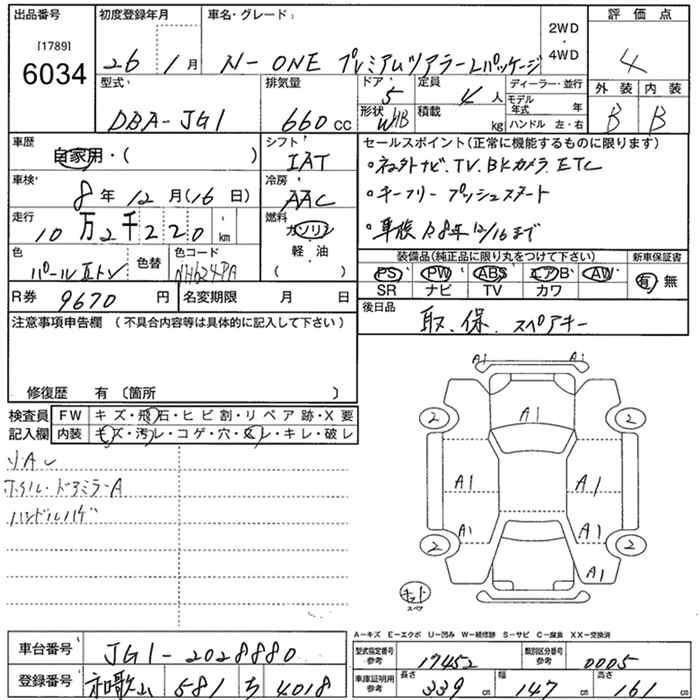 出品番号 初度登録年月 車名・グレード: 評価点
[1789] 6034 26年 1月 N-ONE プレミアムツアラーLパッケージ 2WD・4WD 4
型式 DBA-JG1 排気量 660cc ドア 5 定員 4人 ディーラー・並行 外装 内装
形状 積載 kg モデル年式 年 ハンドル 左・右 B B
車歴 自家用・( ) シフト IAT セールスポイント(正常に機能するものに限ります)
・ネット外ナビ、TV、BKカメラ、ETC
車検 8年 12月(16日) 冷房 AAC ・キーフリー プッシュスタート
走行 10万2千220km 燃料 ガソリン・車検 R8年12/16まで
軽油 ( )
色 パール 色替 色コード NH624PA
装備品(純正品に限り丸をつけて下さい) 新車保証書
PS PW ABS エアB AW 有・無
SR ナビ TV カワ
R券 9670円 名変期限 月 日 後日品 取、保、スペアキー
注意事項申告欄 (不具合内容等は具体的に記入して下さい)
修復歴 有 〔箇所 〕
検査員記入欄 FW キズ・飛石・ヒビ割・リペア跡・X要
内装 キズ・汚レ・コゲ・穴・スレ・キレ・破レ
ホイル・ドアミラーA
ハンドルハゲ
A1 A1 2 2 A1 A1 A1 A1 A1 2 2 A1 A1
キット スペア
A－キズ E－エクボ U－凹み W－補修跡 S－サビ C－腐食 XX－交換済
車台番号 JG1-2028880 型式指定番号 参考 17452 類別区分番号 参考 0005
登録番号 和歌山 581 ち 4018 車庫証明用 参考 長さ 339cm 幅 147cm 高さ 161cm